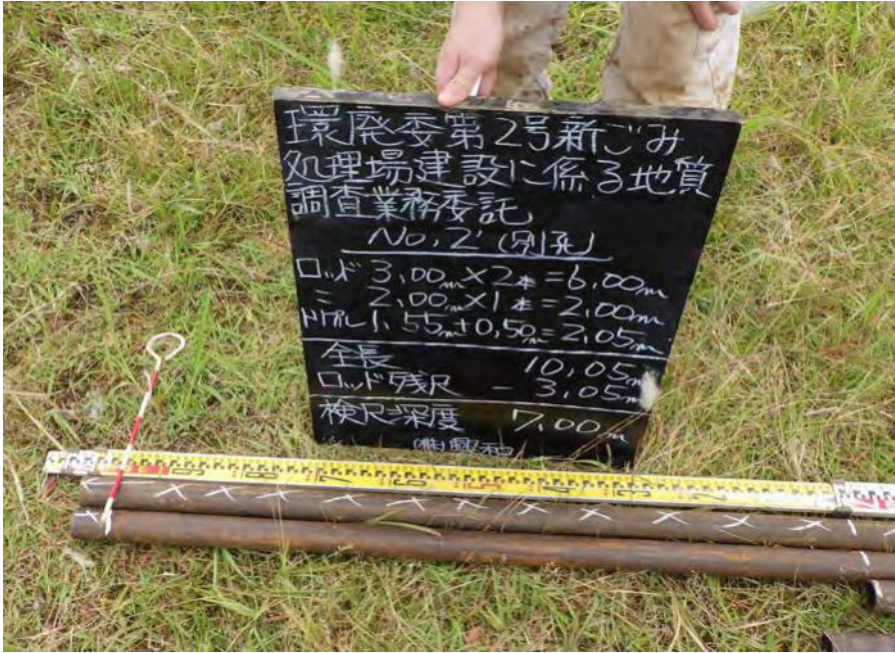 環廃委第2号新ごみ
処理場建設に係る地質
調査業務委託
No,2' (別孔)
ロッド 3,00m×2本=6,00m
〃 2,00m×1本=2,00m
トリプル 1,55m+0,50m=2,05m
全長 10,05m
ロッド残尺 - 3,05m
検尺深度 7,00m
㈱興和